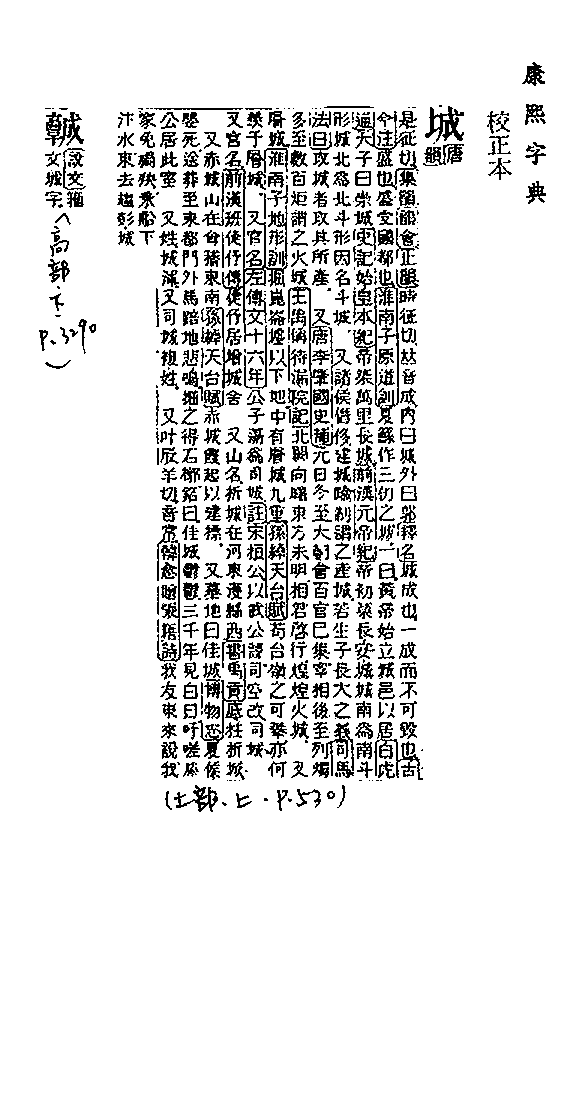 康熙字典
校正本
城唐韻
是征切集韻韻會正韻時征切𠀤音成內曰城外曰郭釋名城成也一成而不可毀也古
今注盛也盛受國都也淮南子原道訓夏鯀作三仞之城一曰黃帝始立城邑以居白虎
通天子曰崇城史記始皇本紀帝築萬里長城前漢元帝紀帝初築長安城城南爲南斗
形城北爲北斗形因名斗城 又諸侯僭侈建城踰制謂之產城若生子長大之義司馬
法曰攻城者攻其所產 又唐李肇國史補元日冬至大朝會百官已集宰相後至列燭
多至數百炬謂之火城王禹偁待漏院記北闕向曙東方未明相君啓行煌煌火城 又
層城淮南子地形訓掘崑崙墟以下地中有層城九重孫綽天台賦苟台嶺之可攀亦何
羨于層城 又官名左傳文十六年公子蕩爲司城註宋桓公以武公諱司空改司城
又宮名前漢班倢伃傳倢伃居增城舍 又山名析城在河東濩縣西書禹貢底柱析城
又赤城山在會稽東南孫綽天台賦赤城霞起以建標 又墓地曰佳城博物志夏侯
嬰死送葬至東都門外馬踣地悲鳴掘之得石槨銘曰佳城鬱鬱三千年見白日吁嗟滕
公居此室 又姓城渾又司城複姓 又叶辰羊切音常韓愈贈張籍詩我友東來說我
家免禍殃乘船下
汴水東去趨彭城
(土部.上.P.530)
𩫨說文籀
文城字
(高部.下.P.3290)